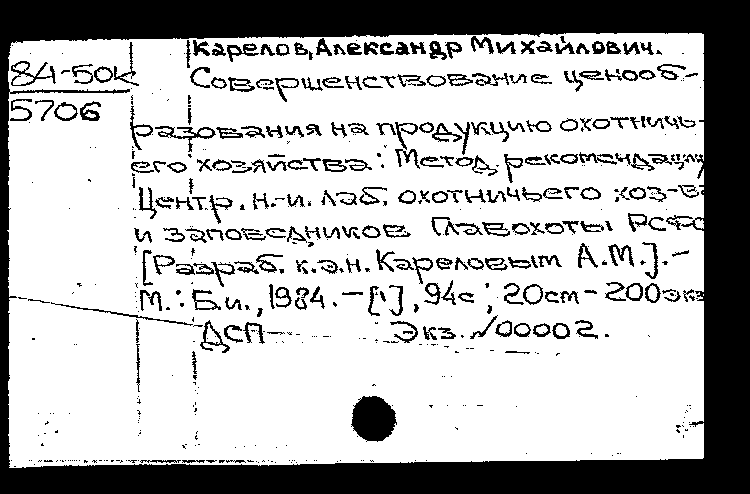 Карелов, Александр Михайлович.
84-50к
5706
Совершенствование ценооб-
разования на продукцию охотничь-
его хозяйства: Метод. рекомендации
Центр. н.-и. лаб. охотничьего хоз-ва
и заповедников Главохоты РСФС
[Разраб. к.э.н. Кареловым А.М.].-
М.: Б.и., 1984. - [1], 94с; 20см - 200экз
ДСП Экз. № 00002.